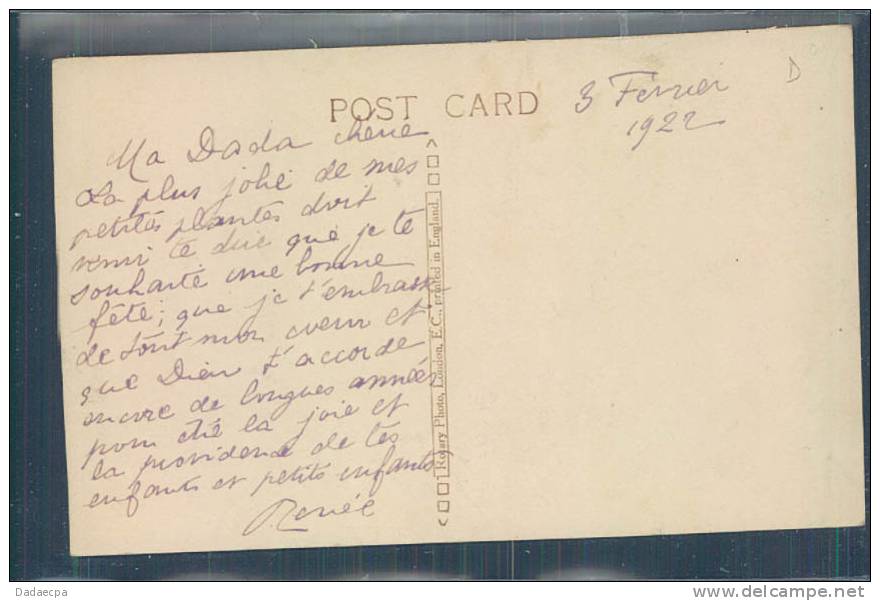 POST CARD
3 Fevrier
1922
D
Ma Dada chérie
La plus jolie de mes
petites plantes doit
venir te dire que je te
souhaite une bonne
fête; que je t'embrasse
de tout mon coeur et
que Dieu t'accorde
encore de longues années
pour être la joie et
la providence de tes
enfants et petits enfants
Renée
Rotary Photo, London, E.C., printed in England.
Dadaecpa
delcampe.net